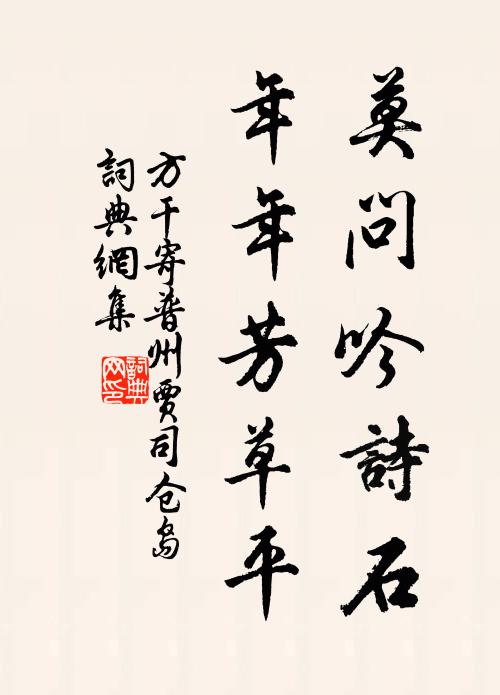 莫問吟詩石
年年芳草平
方干寄普州賈司仓島
詞典網集
詞典网印